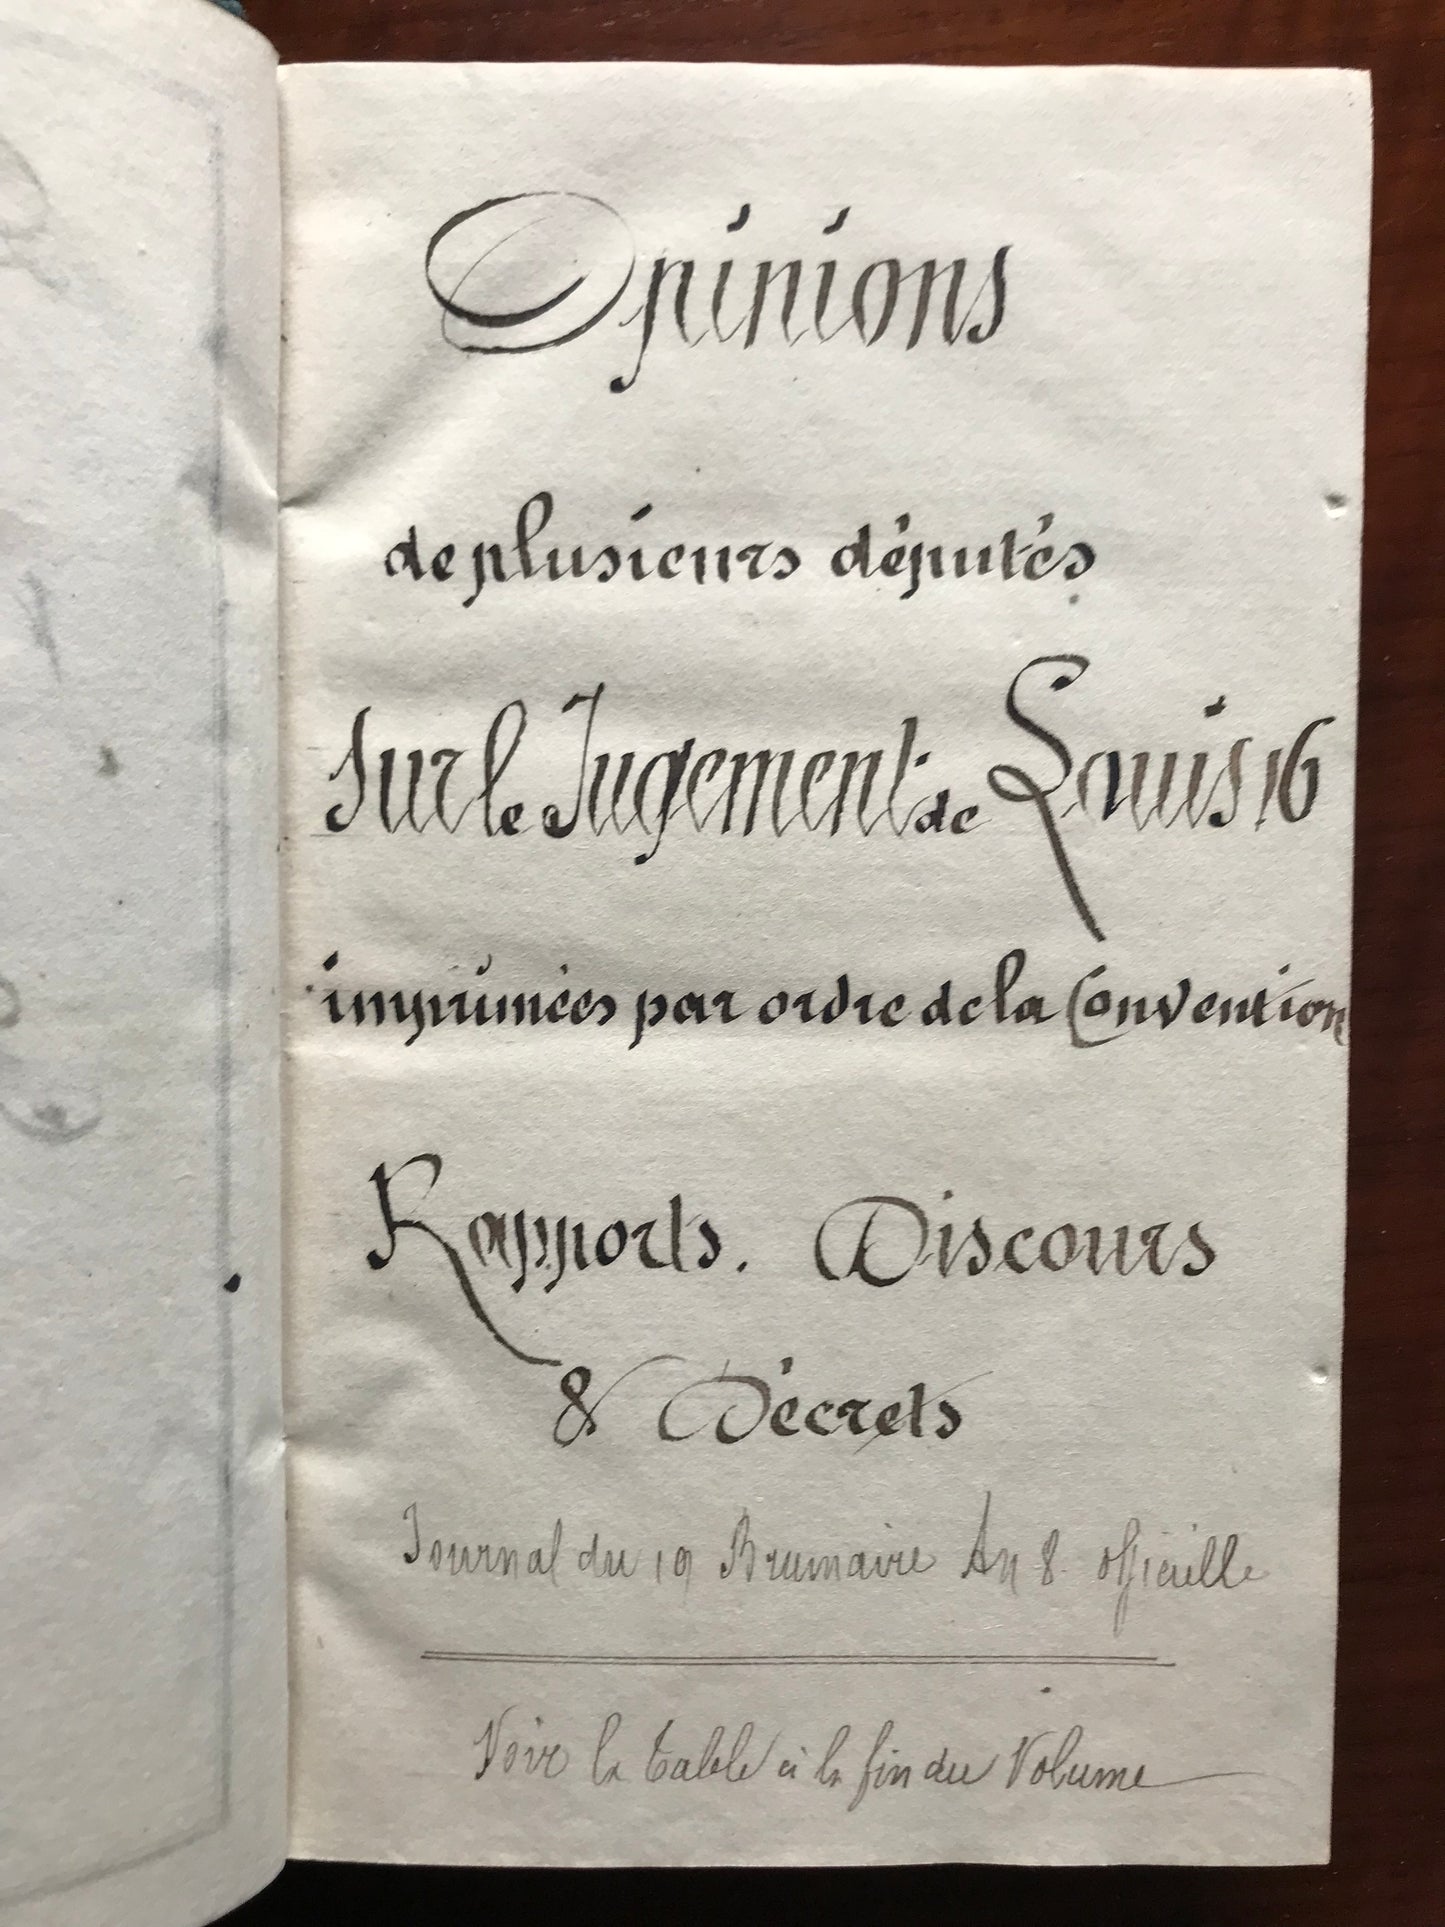 Opinions
de plusieurs députés
sur le Jugement de Louis 16
imprimées par ordre de la Convention
Rapports. Discours
& Décrets
Journal du 19 Brumaire An 8. officielle
Voir la table à la fin du Volume